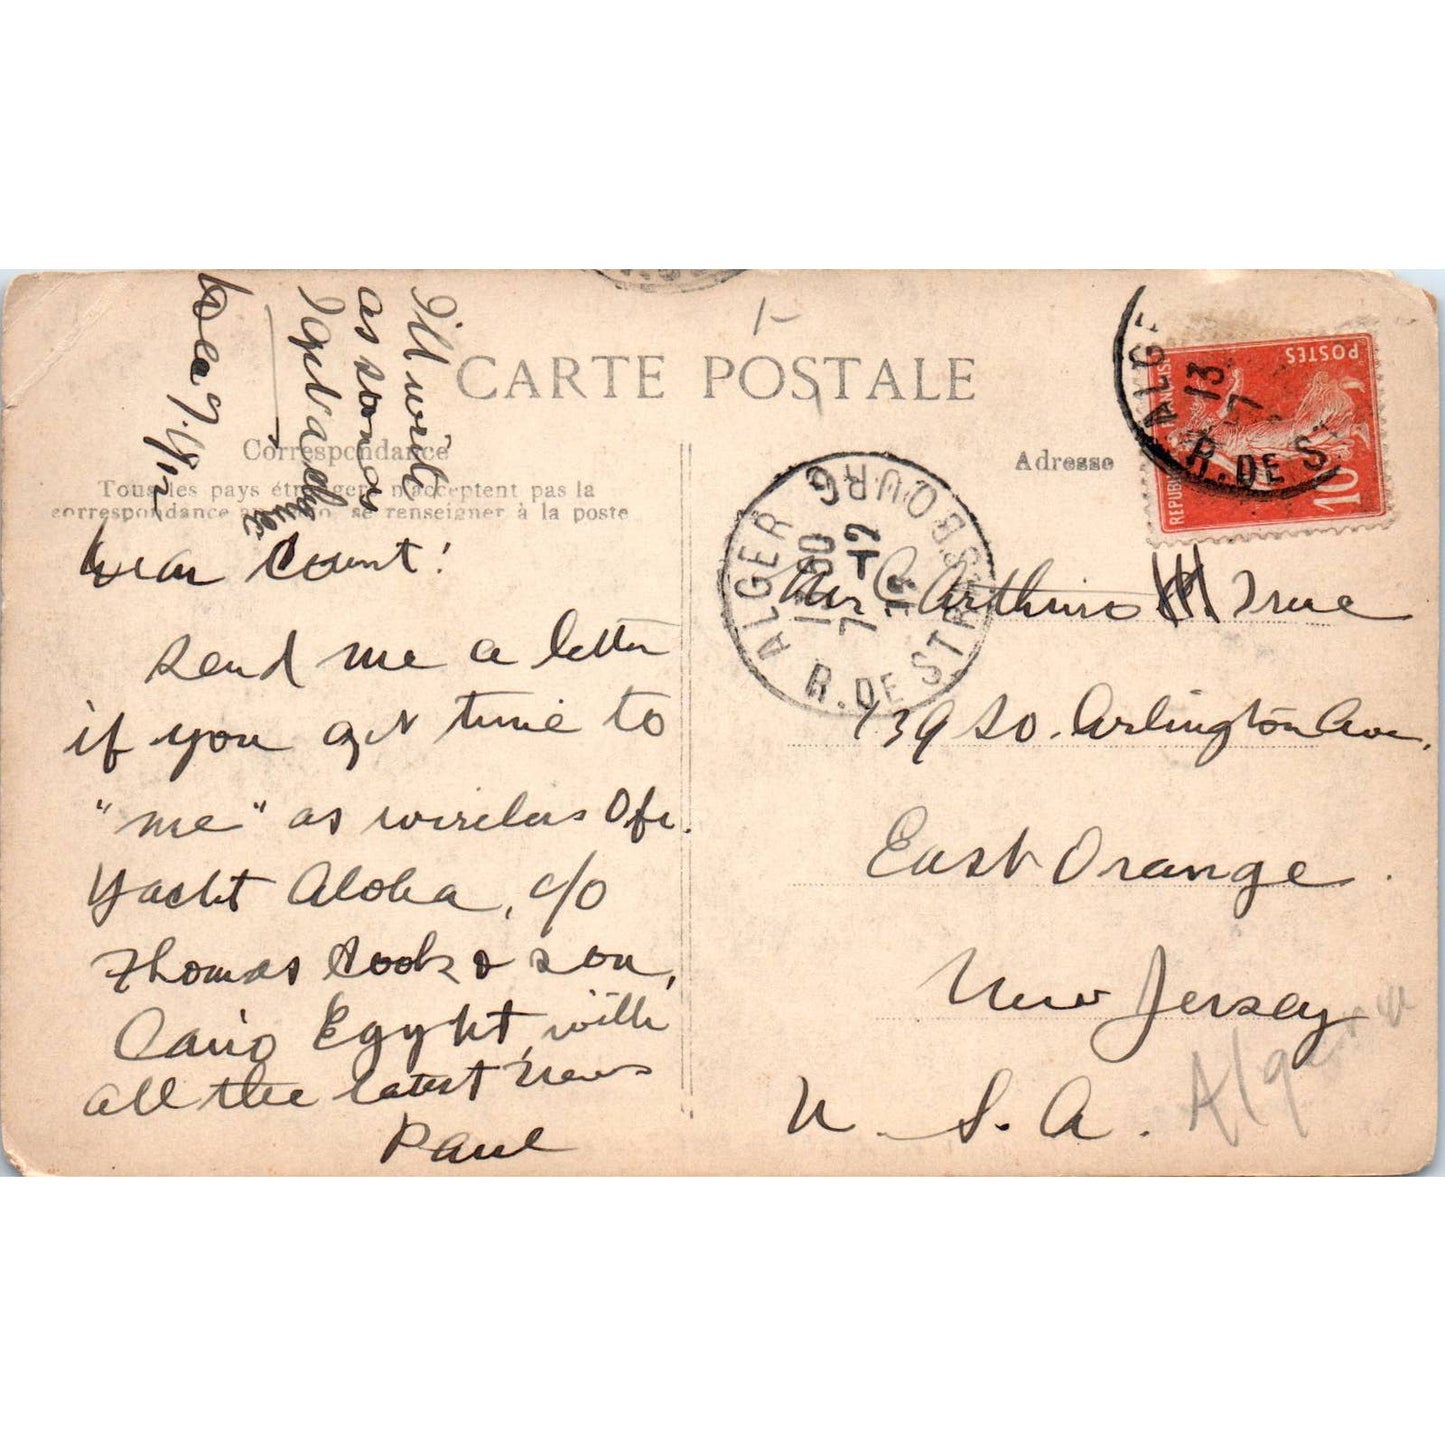 CARTE POSTALE
Correspondance
Tous les pays étrangers n'acceptent pas la
correspondance se renseigner à la poste
Adresse
I'll write
as soon as
I get a
Dec 7.
Dear Count!
Send me a letter
if you get time to
"me" as wireless Ofr.
Yacht Aloha, c/o
Thomas Cook & Son,
Cairo Egypt, with
all the latest news
Paul
ALGER R. DE STRASBOURG
7
12
ALGE
13
7
R. DE S
POSTES
10
Mr C Arthur True
139 So. Arlington Ave.
East Orange.
New Jersey
U. S. A.
Algeria